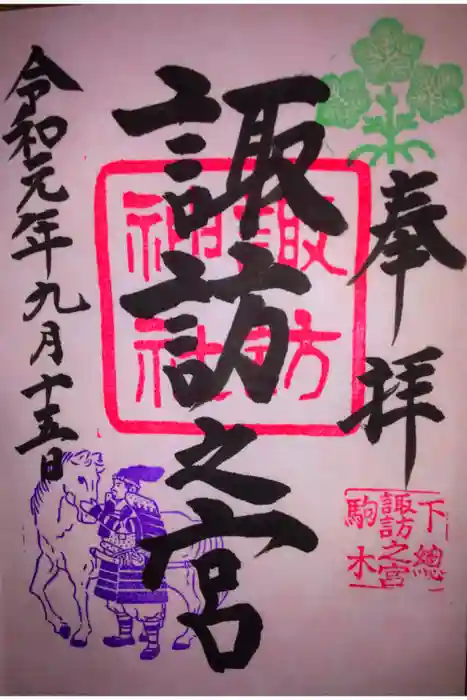 奉拝
諏訪之宮
諏訪
神社
令和元年九月十五日
下總
諏訪之宮
駒木